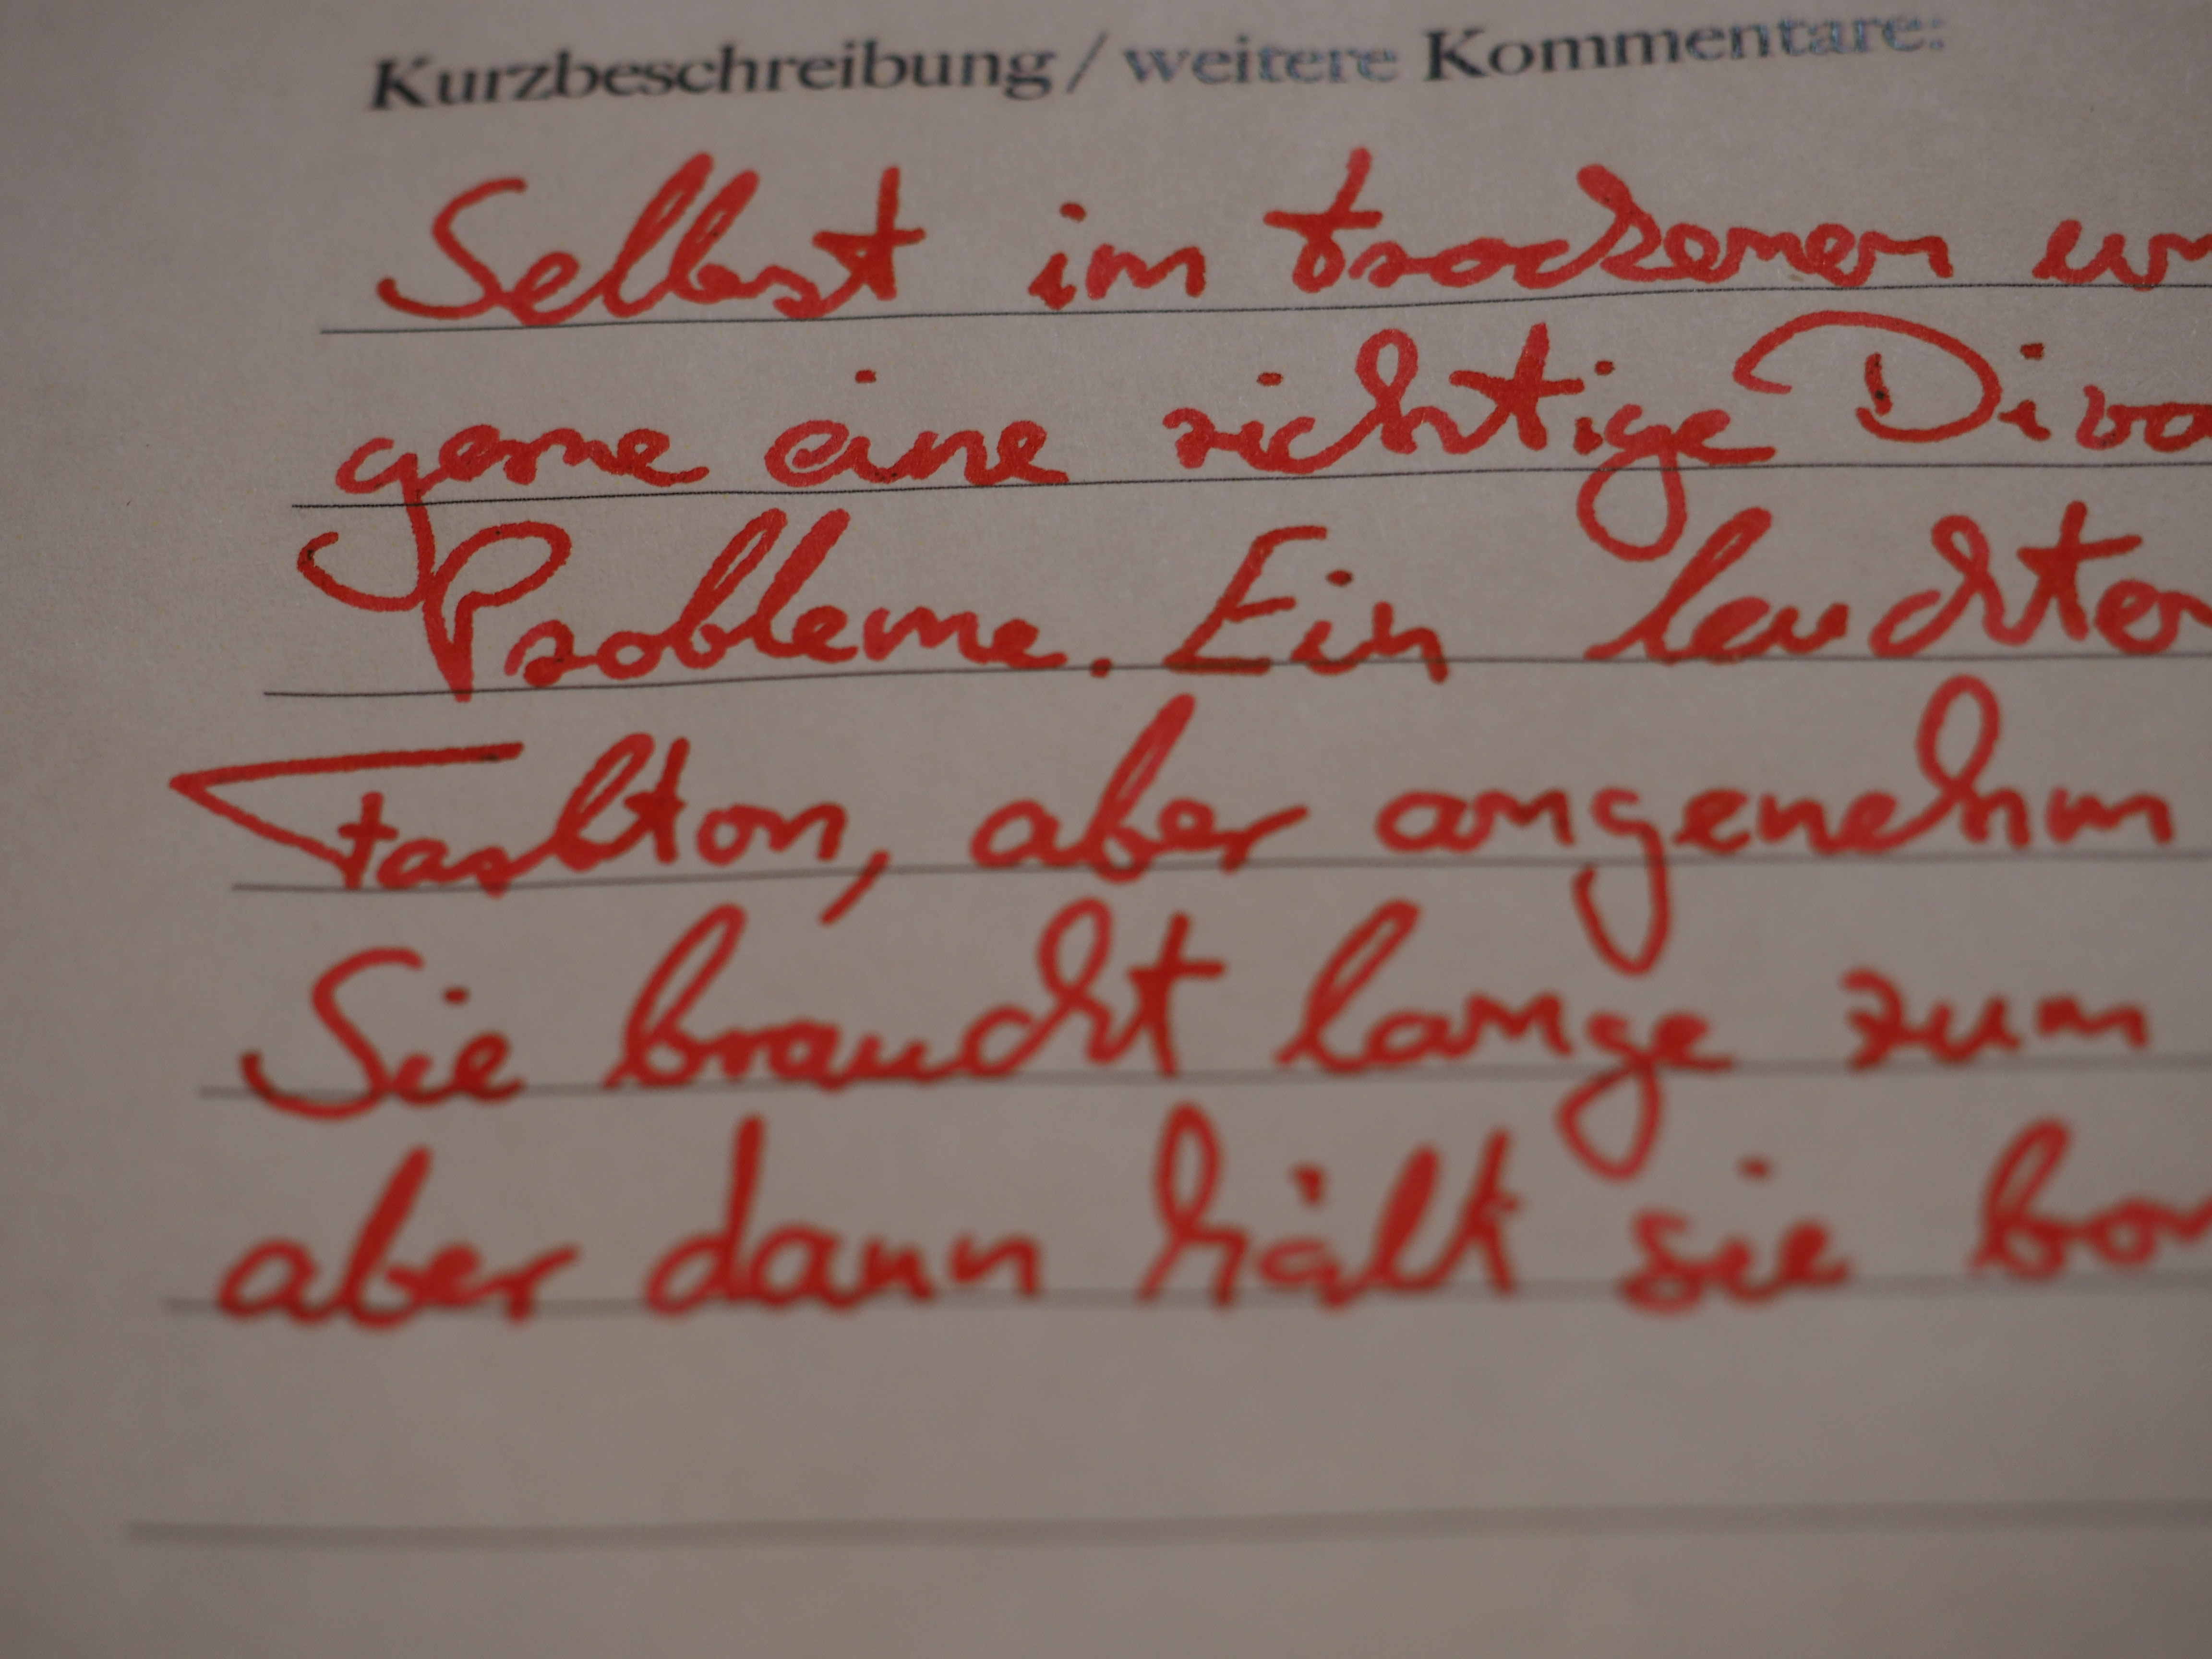 Kurzbeschreibung / weitere Kommentare:
Selbst im trockenen
gerne eine richtige Diva
Probleme. Ein
Farbton, aber angenehm
Sie braucht lange zum
aber dann hält sie